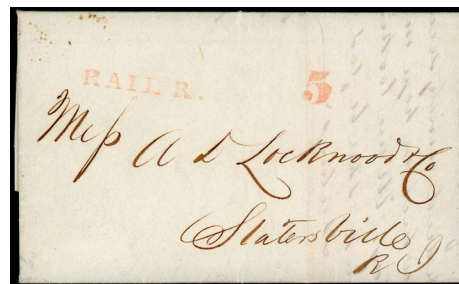 RAIL R. 5
Mess A D Lockwood & Co
Slatersville
R I